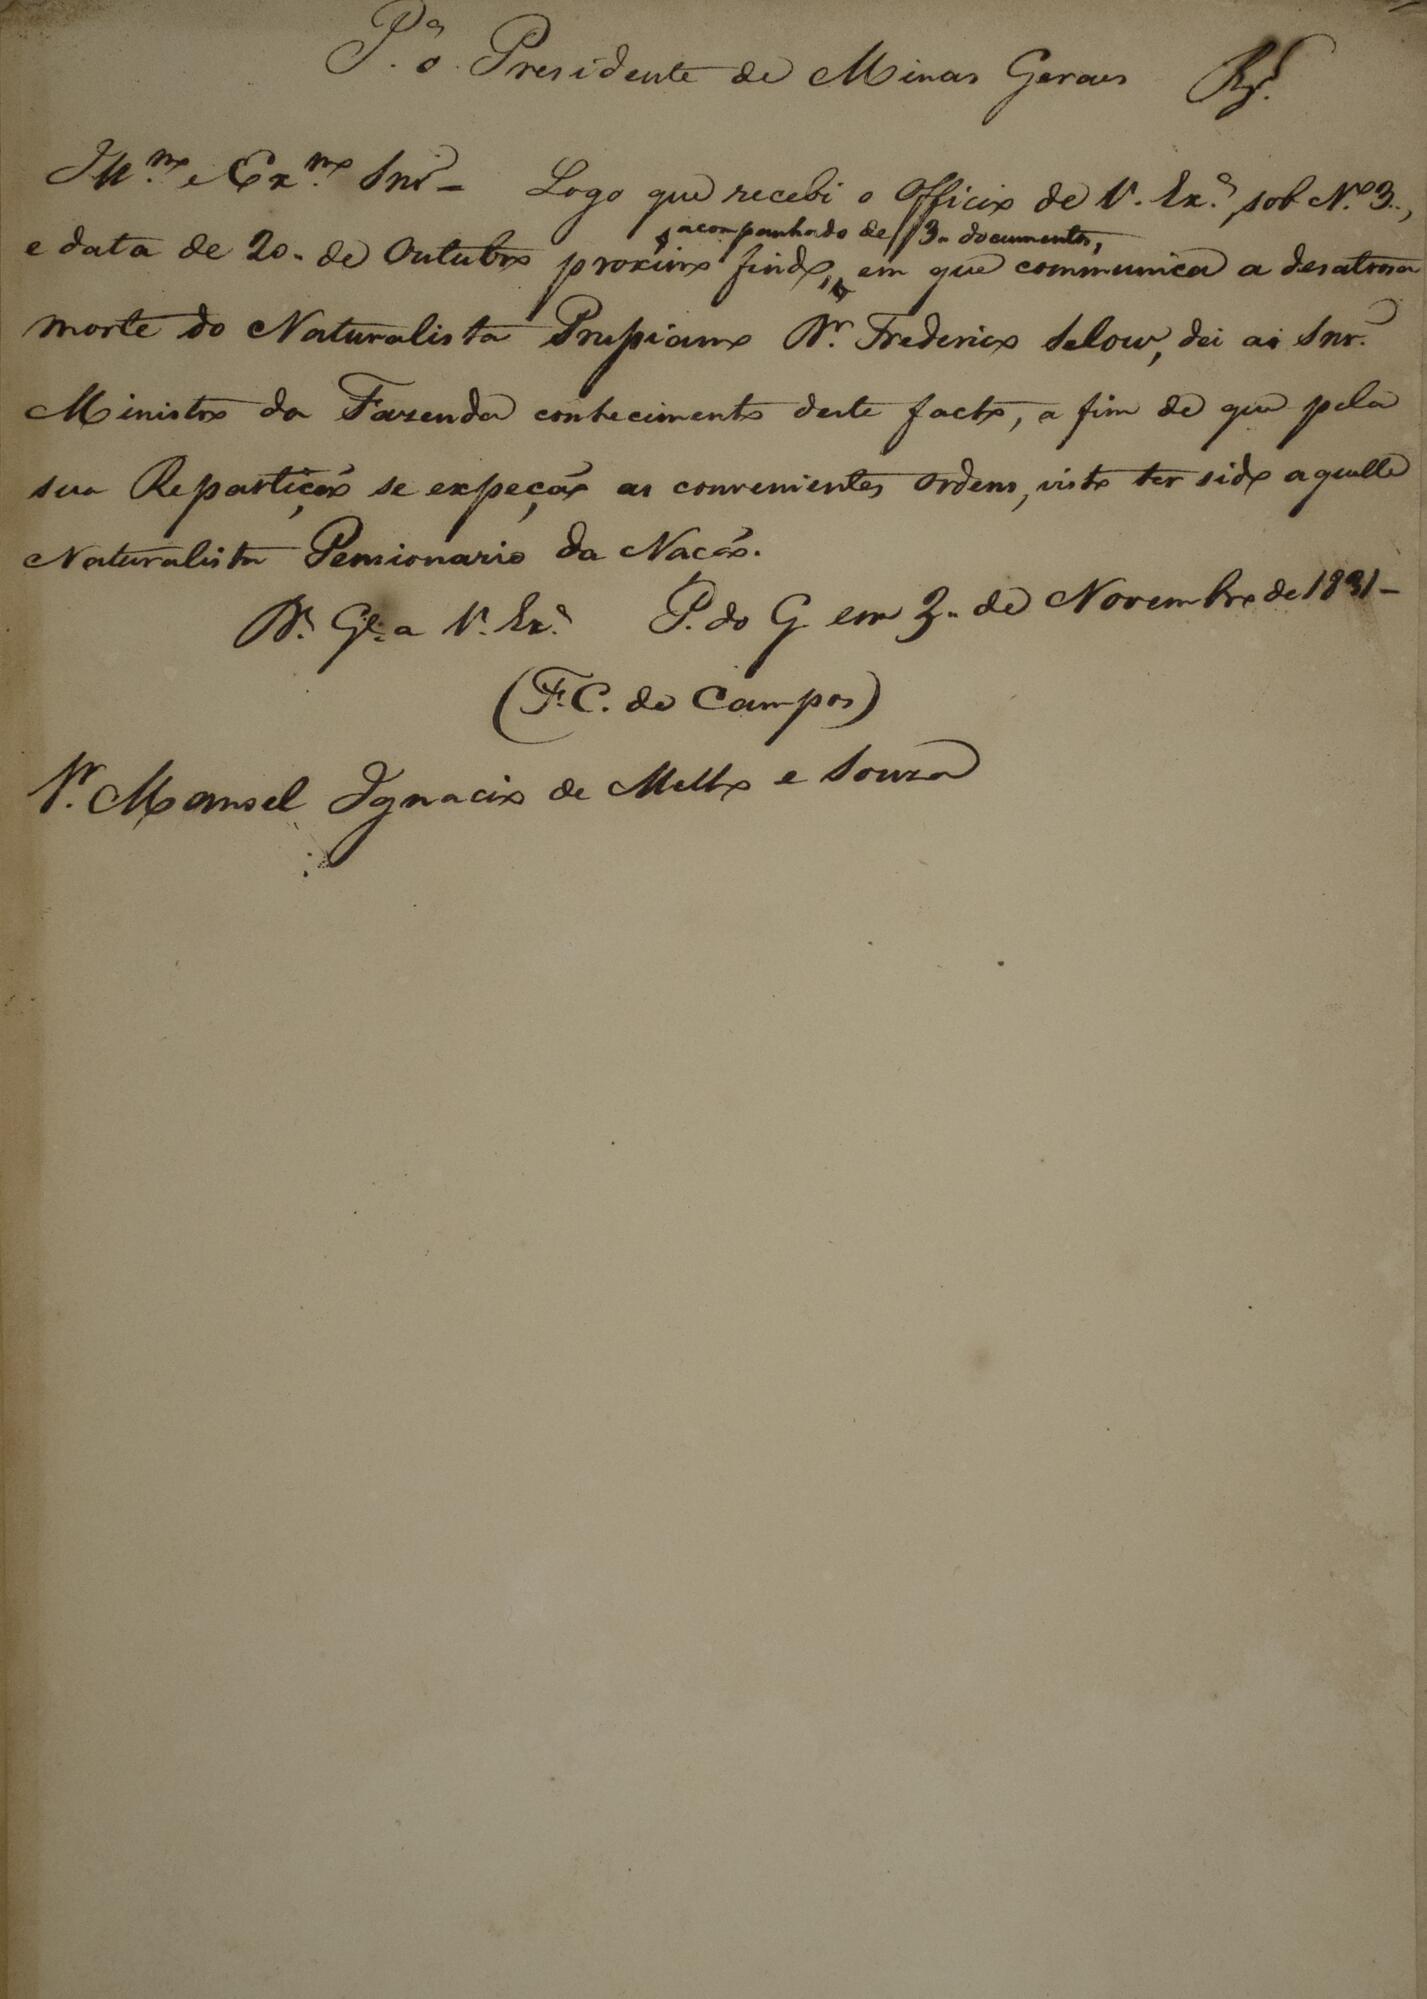 P.ª o Presidente de Minas Geraes Rg.
Ill.mo e Ex.mo Snr – Logo que recebi o Officio de V. Ex.ª sob N.º 3.,
acompanhado de 3 documentos,
e data de 20 de Outubro proximo findo, em que communica a desatrosa
morte do Naturalista Prussiano Dr. Frederico Selow, dei ao Snr.
Ministro da Fazenda conhecimento deste facto, a fim de que pela
sua Repartição se expeção as convenientes Ordens, visto ter sido aquelle
Naturalista Pensionario da Nação.
D.s G.e a V. Ex.ª P. do G em 3 de Novembro de 1831 –
(F. C. de Campos)
Sr. Manoel Ignacio de Mello e Souza